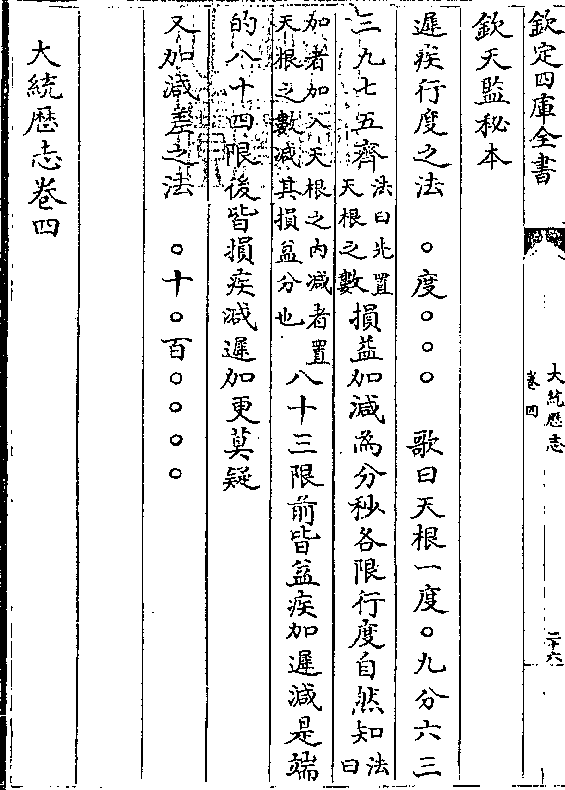 欽定四庫全書
大統厯志
卷四
二十六
欽天監秘本
遲疾行度之法　○度○○○　歌曰天根一度○九分六三
三九七五齊法曰先置天根之數損益加減為分秒各限行度自然知法曰
加者加入天根之内減者置天根之數減其損益分也八十三限前皆益疾加遲減是端
的八十四限後皆損疾減遲加更莫疑
又加減差之法　○十○百○○○○
大統厯志卷四